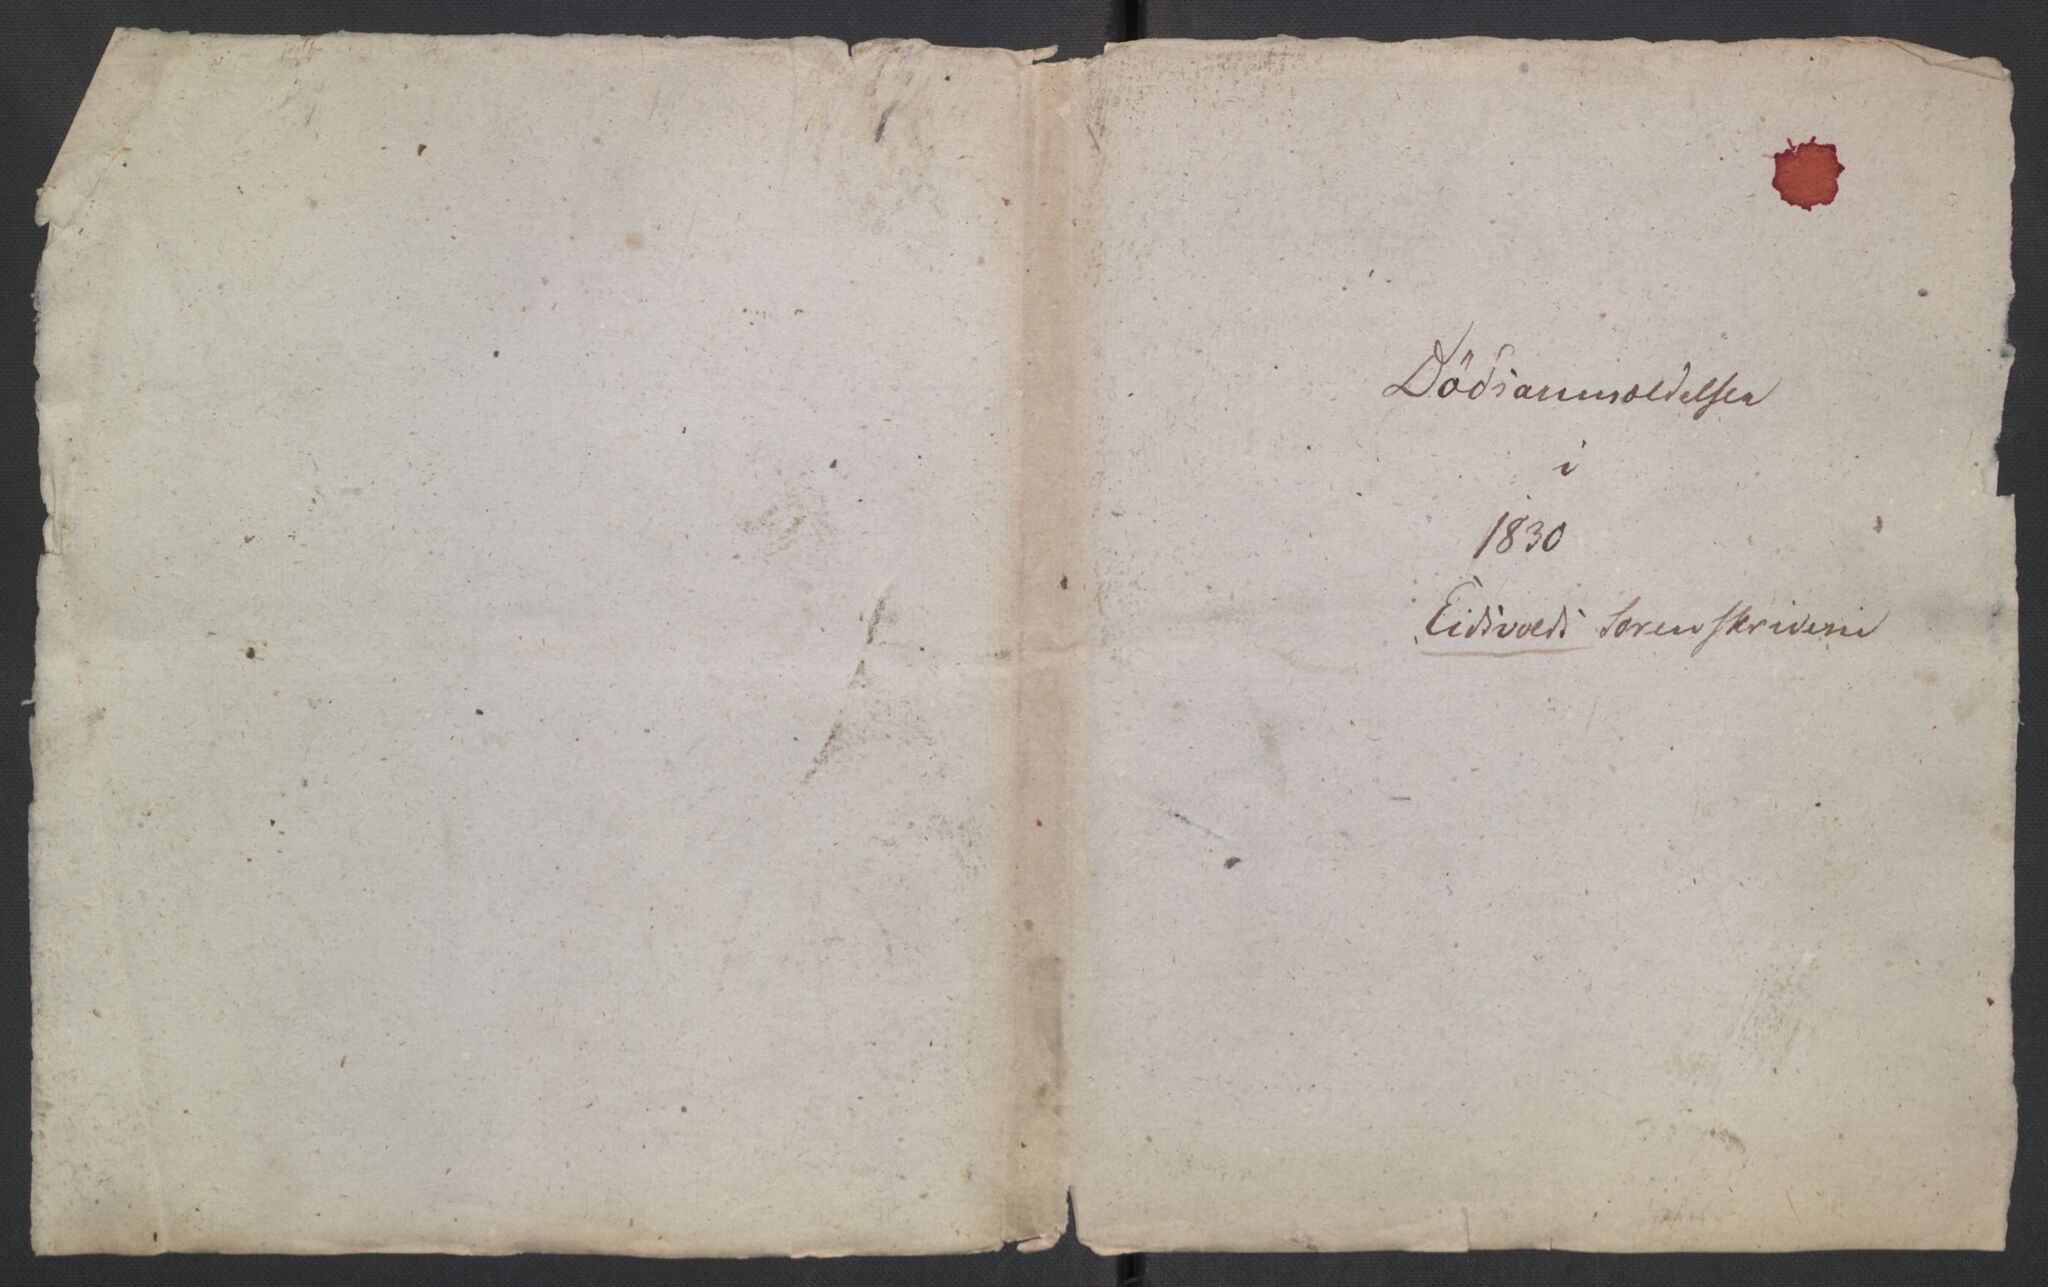 Dödsanmeldelser
i
1830
Eidsvolds Sorenskriveri